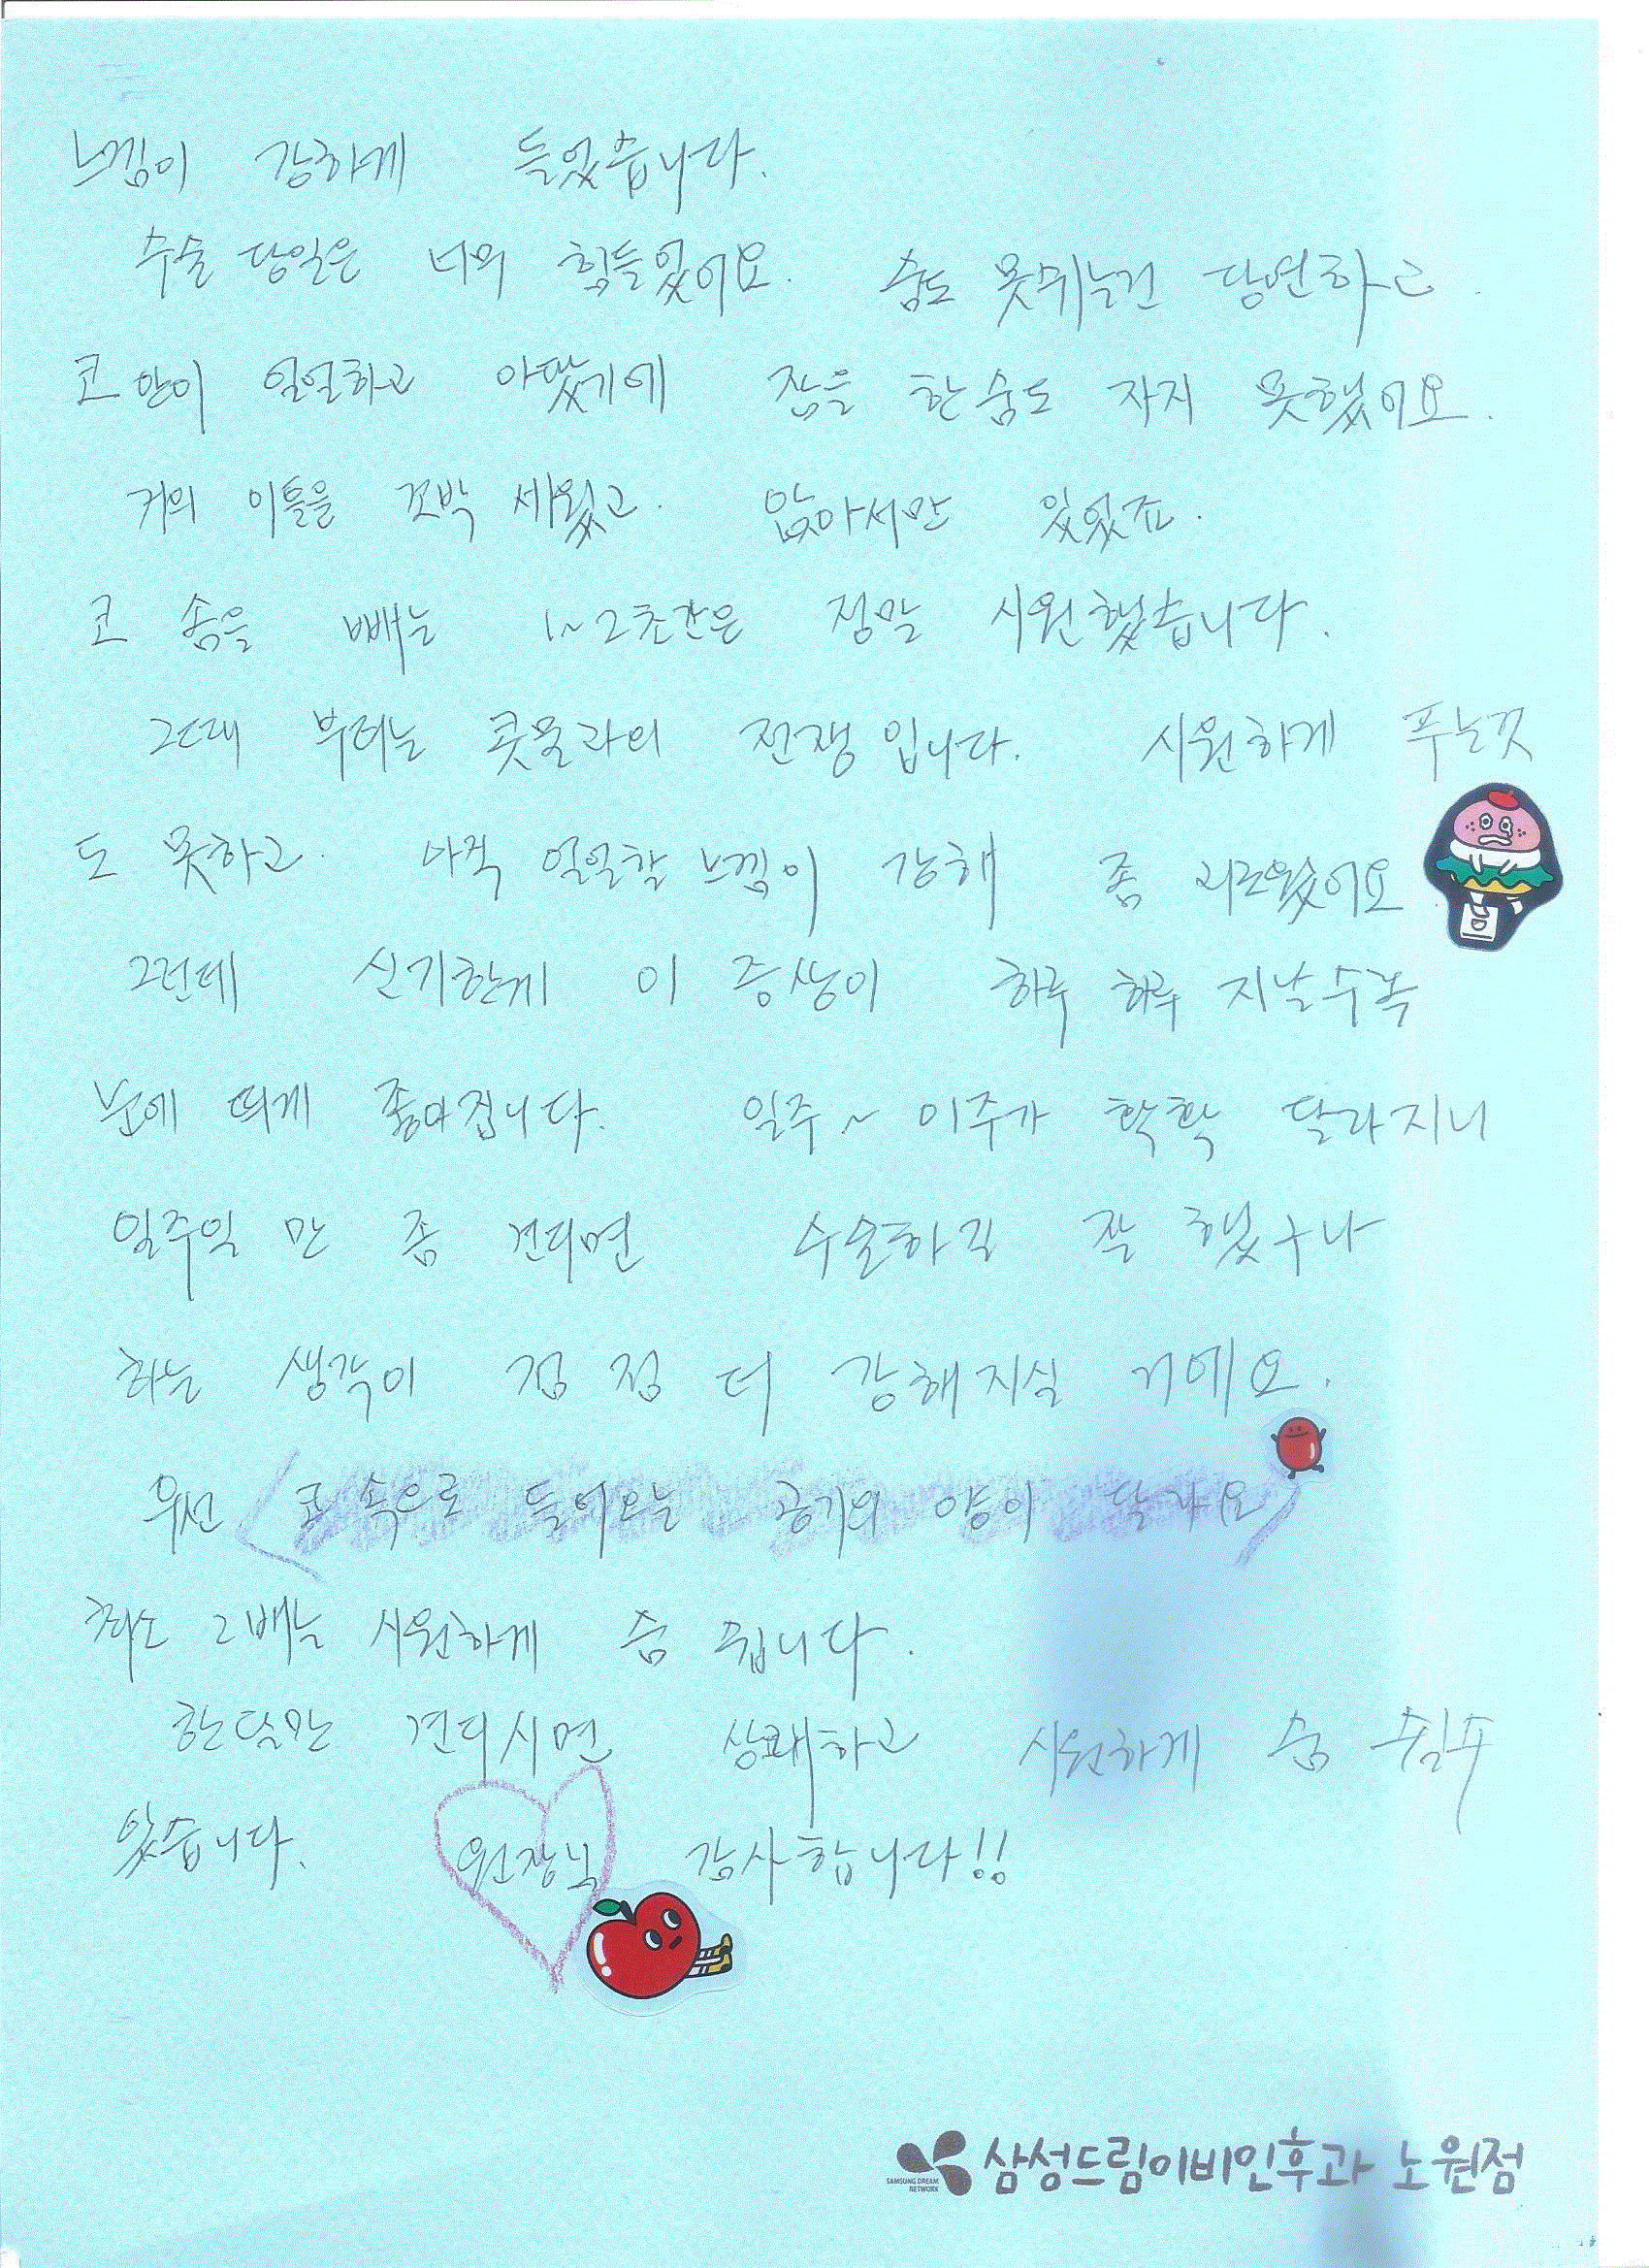 느낌이 강하게 들었습니다.
수술 당일은 너의 힘들었어요. 숨도 못쉬는건 당연하고
코 안이 얼얼하고 아팠기에 잠을 한숨도 자지 못했어요.
거의 이틀을 꼬박 세웠고. 앉아서만 있었죠.
코 솜을 빼는 1~2초간은 정말 시원했습니다.
그때 부터는 콧물과의 전쟁입니다. 시원하게 푸는것
도 못하고. 아직 얼얼한 느낌이 강해 좀 괴로웠어요
그런데 신기한게 이 증상이 하루 하루 지날수록
눈에 띄게 좋아집니다. 일주~이주가 확확 달라지니
일주일 만 좀 견디면 수술하길 잘 했구나
하는 생각이 점점 더 강해지실 거에요.
우선 코 속으로 들어오는 공기의 양이 달라요
최소 2배는 시원하게 숨 쉽니다.
한달만 견디시면 상쾌하고 시원하게 숨 쉴수
있습니다. 원장님 감사합니다!!
SAMSUNG DREAM NETWORK 삼성드림이비인후과 노원점